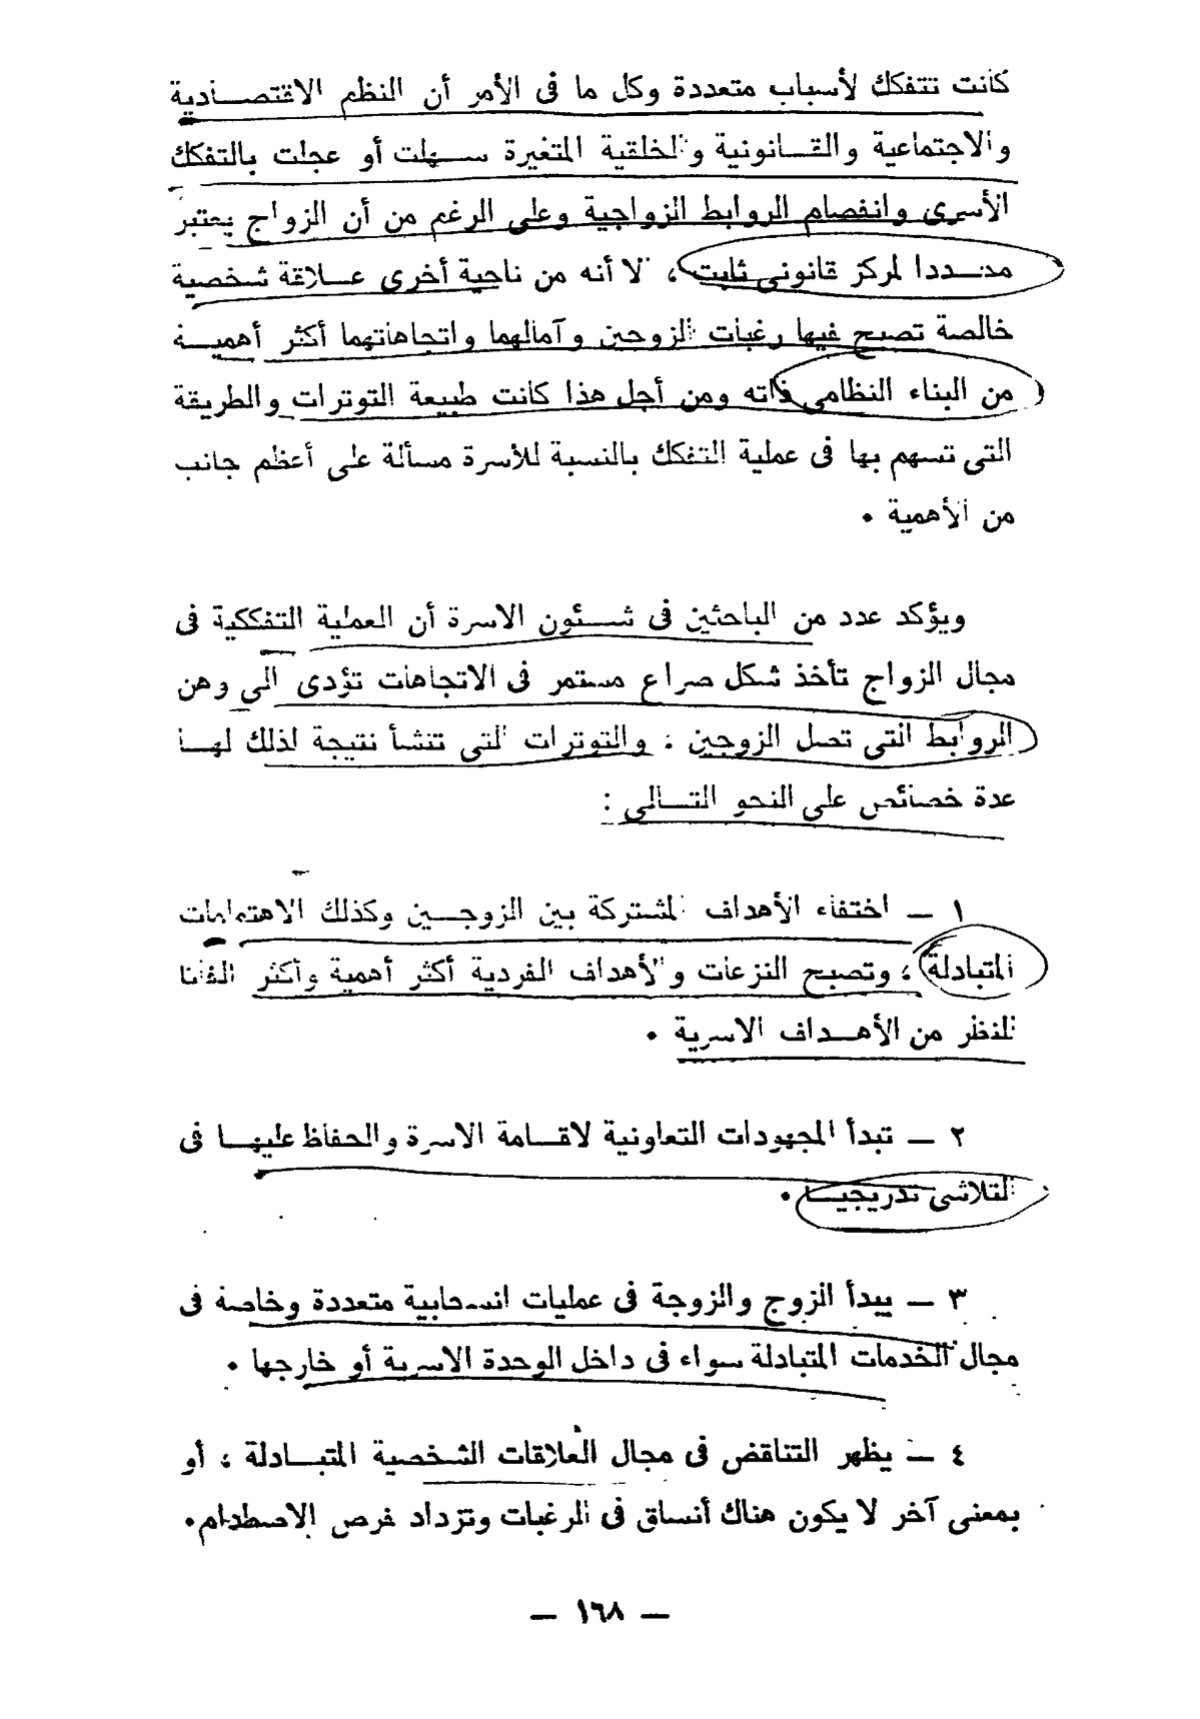 كانت تتفكك لأسباب متعددة وكل ما فى الأمر أن النظم الاقتصادية
والاجتماعية والقانونية والخلقية المتغيرة سهلت أو عجلت بالتفكك
الأسرى وانفصام الروابط الزواجية وعلى الرغم من أن الزواج يعتبر
محددا لمركز قانونى ثابت، الا أنه من ناحية أخرى علاقة شخصية
خالصة تصبح فيها رغبات الزوجين وآمالهما واتجاهاتهما أكثر أهمية
من البناء النظامى ذاته ومن أجل هذا كانت طبيعة التوترات والطريقة
التى تسهم بها فى عملية التفكك بالنسبة للأسرة مسألة على أعظم جانب
من الأهمية .
ويؤكد عدد من الباحثين فى شئون الاسرة أن العملية التفككية فى
مجال الزواج تأخذ شكل صراع مستمر فى الاتجاهات تؤدى الى وهن
الروابط التى تصل الزوجين ، والتوترات التى تنشأ نتيجة لذلك لها
عدة خصائص على النحو التالى :
١ – اختفاء الأهداف المشتركة بين الزوجين وكذلك الاهتمامات
المتبادلة ، وتصبح النزعات والأهداف الفردية أكثر أهمية وأكثر الفاتا
للنظر من الأهداف الاسرية .
٢ – تبدأ المجهودات التعاونية لاقامة الاسرة والحفاظ عليها فى
التلاشى تدريجيا .
٣ – يبدأ الزوج والزوجة فى عمليات انسحابية متعددة وخاصة فى
مجال الخدمات المتبادلة سواء فى داخل الوحدة الاسرية أو خارجها .
٤ – يظهر التناقض فى مجال العلاقات الشخصية المتبادلة ، أو
بمعنى آخر لا يكون هناك أنساق فى الرغبات وتزداد فرص الاصطدام.
– ١٦٨ –